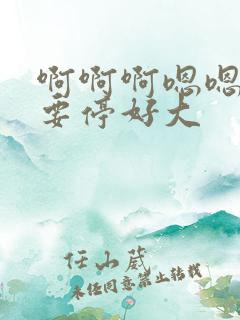 啊啊啊嗯嗯
要停好大
任山葳
未经同意禁止转载